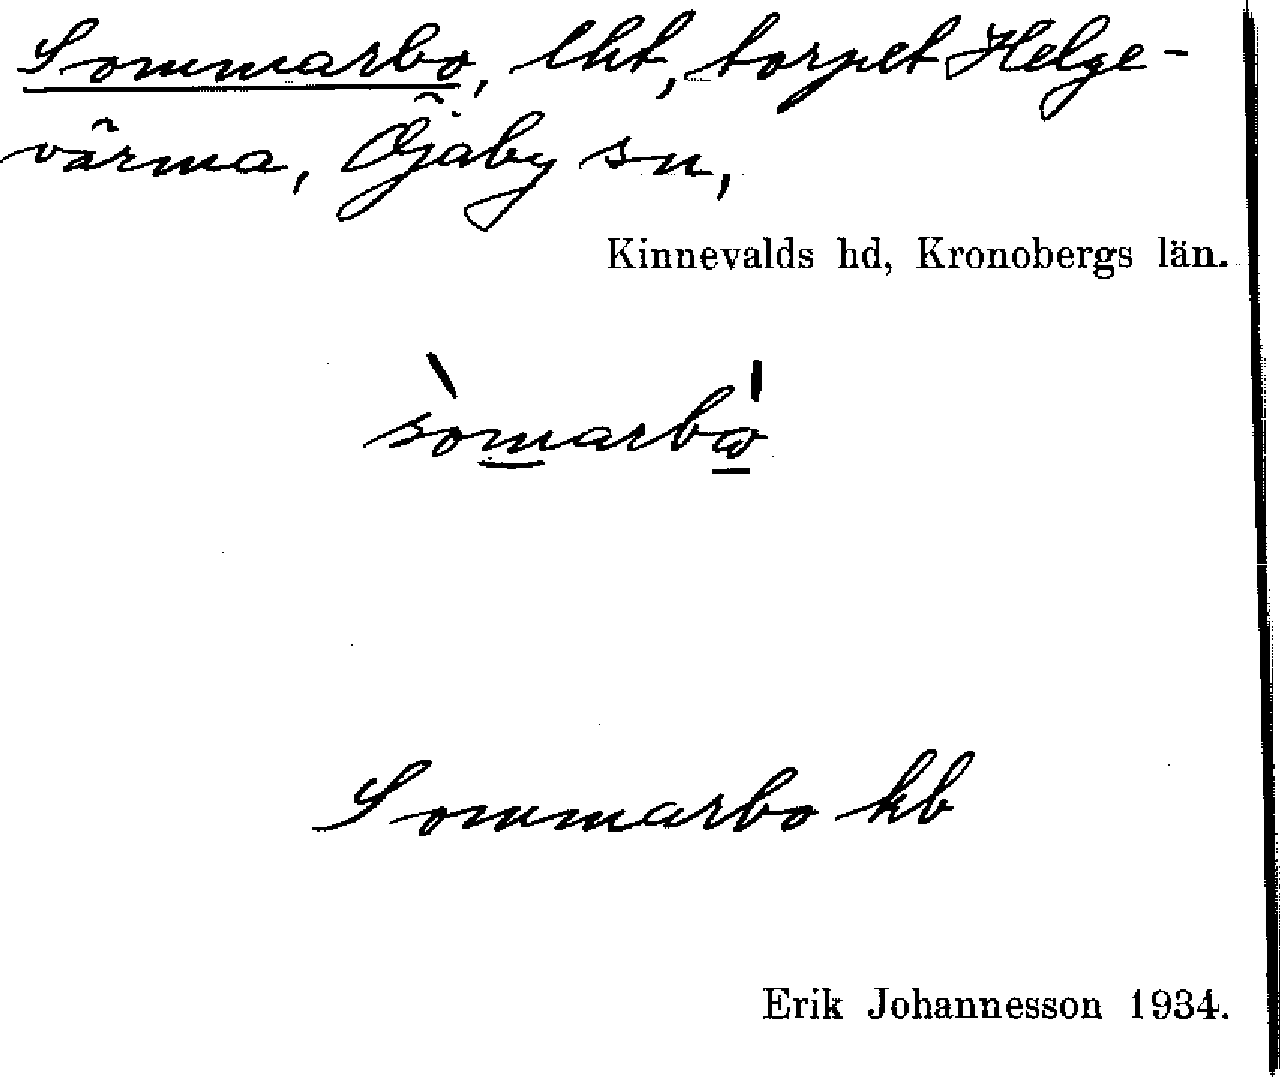 Sommarbo, lht, torpet Helge-
värma, Öjaby sn,
Kinnevalds hd, Kronobergs län.
sòmarbó
Sommarbo kb
Erik Johannesson 1934.